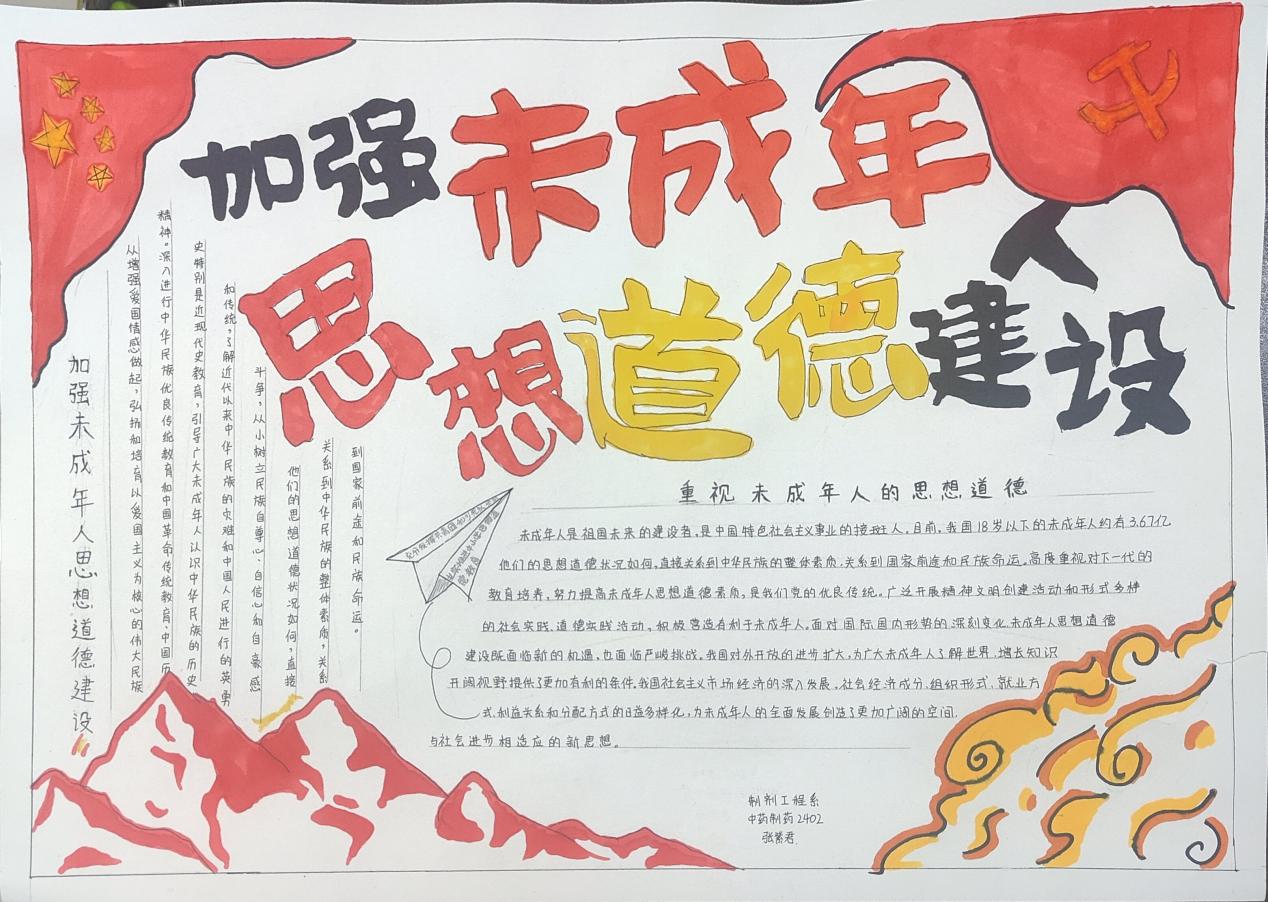 加强未成年人
思想道德建设
加强未成年人思想道德建设
从增强爱国情感做起，弘扬和培育以爱国主义为核心的伟大民族
精神。深入进行中华民族优良传统教育和中国革命传统教育、中国历
史特别是近现代史教育，引导广大未成年人认识中华民族的历史
和传统，了解近代以来中华民族的灾难和中国人民进行的英勇
斗争，从小树立民族自尊心、自信心和自豪感
他们的思想道德状况如何，直接
关系到中华民族的整体素质，关系
到国家前途和民族命运。
重视未成年人的思想道德
未成年人是祖国未来的建设者，是中国特色社会主义事业的接班人。目前，我国18岁以下的未成年人约有3.67亿
他们的思想道德状况如何，直接关系到中华民族的整体素质，关系到国家前途和民族命运。高度重视对下一代的
教育培养，努力提高未成年人思想道德素质，是我们党的优良传统。广泛开展精神文明创建活动和形式多样
的社会实践、道德实践活动，积极营造有利于未成年人。面对国际国内形势的深刻变化，未成年人思想道德
建设既面临新的机遇，也面临严峻挑战。我国对外开放的进步扩大，为广大未成年人了解世界、增长知识
开阔视野提供了更加有利的条件。我国社会主义市场经济的深入发展，社会经济成分、组织形式、就业方
式、利益关系和分配方式的日益多样化，为未成年人的全面发展创造了更加广阔的空间，
与社会进步相适应的新思想。
制剂工程系
中药制药2402
张紫君